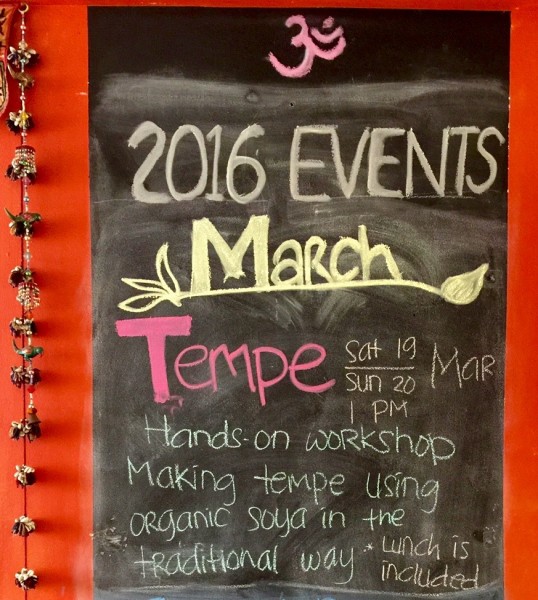 ॐ
2016 EVENTS
March
Tempe
Sat 19
Sun 20
Mar
1 PM
Hands-on workshop
Making tempe using
organic soya in the
traditional way
* Lunch is
included